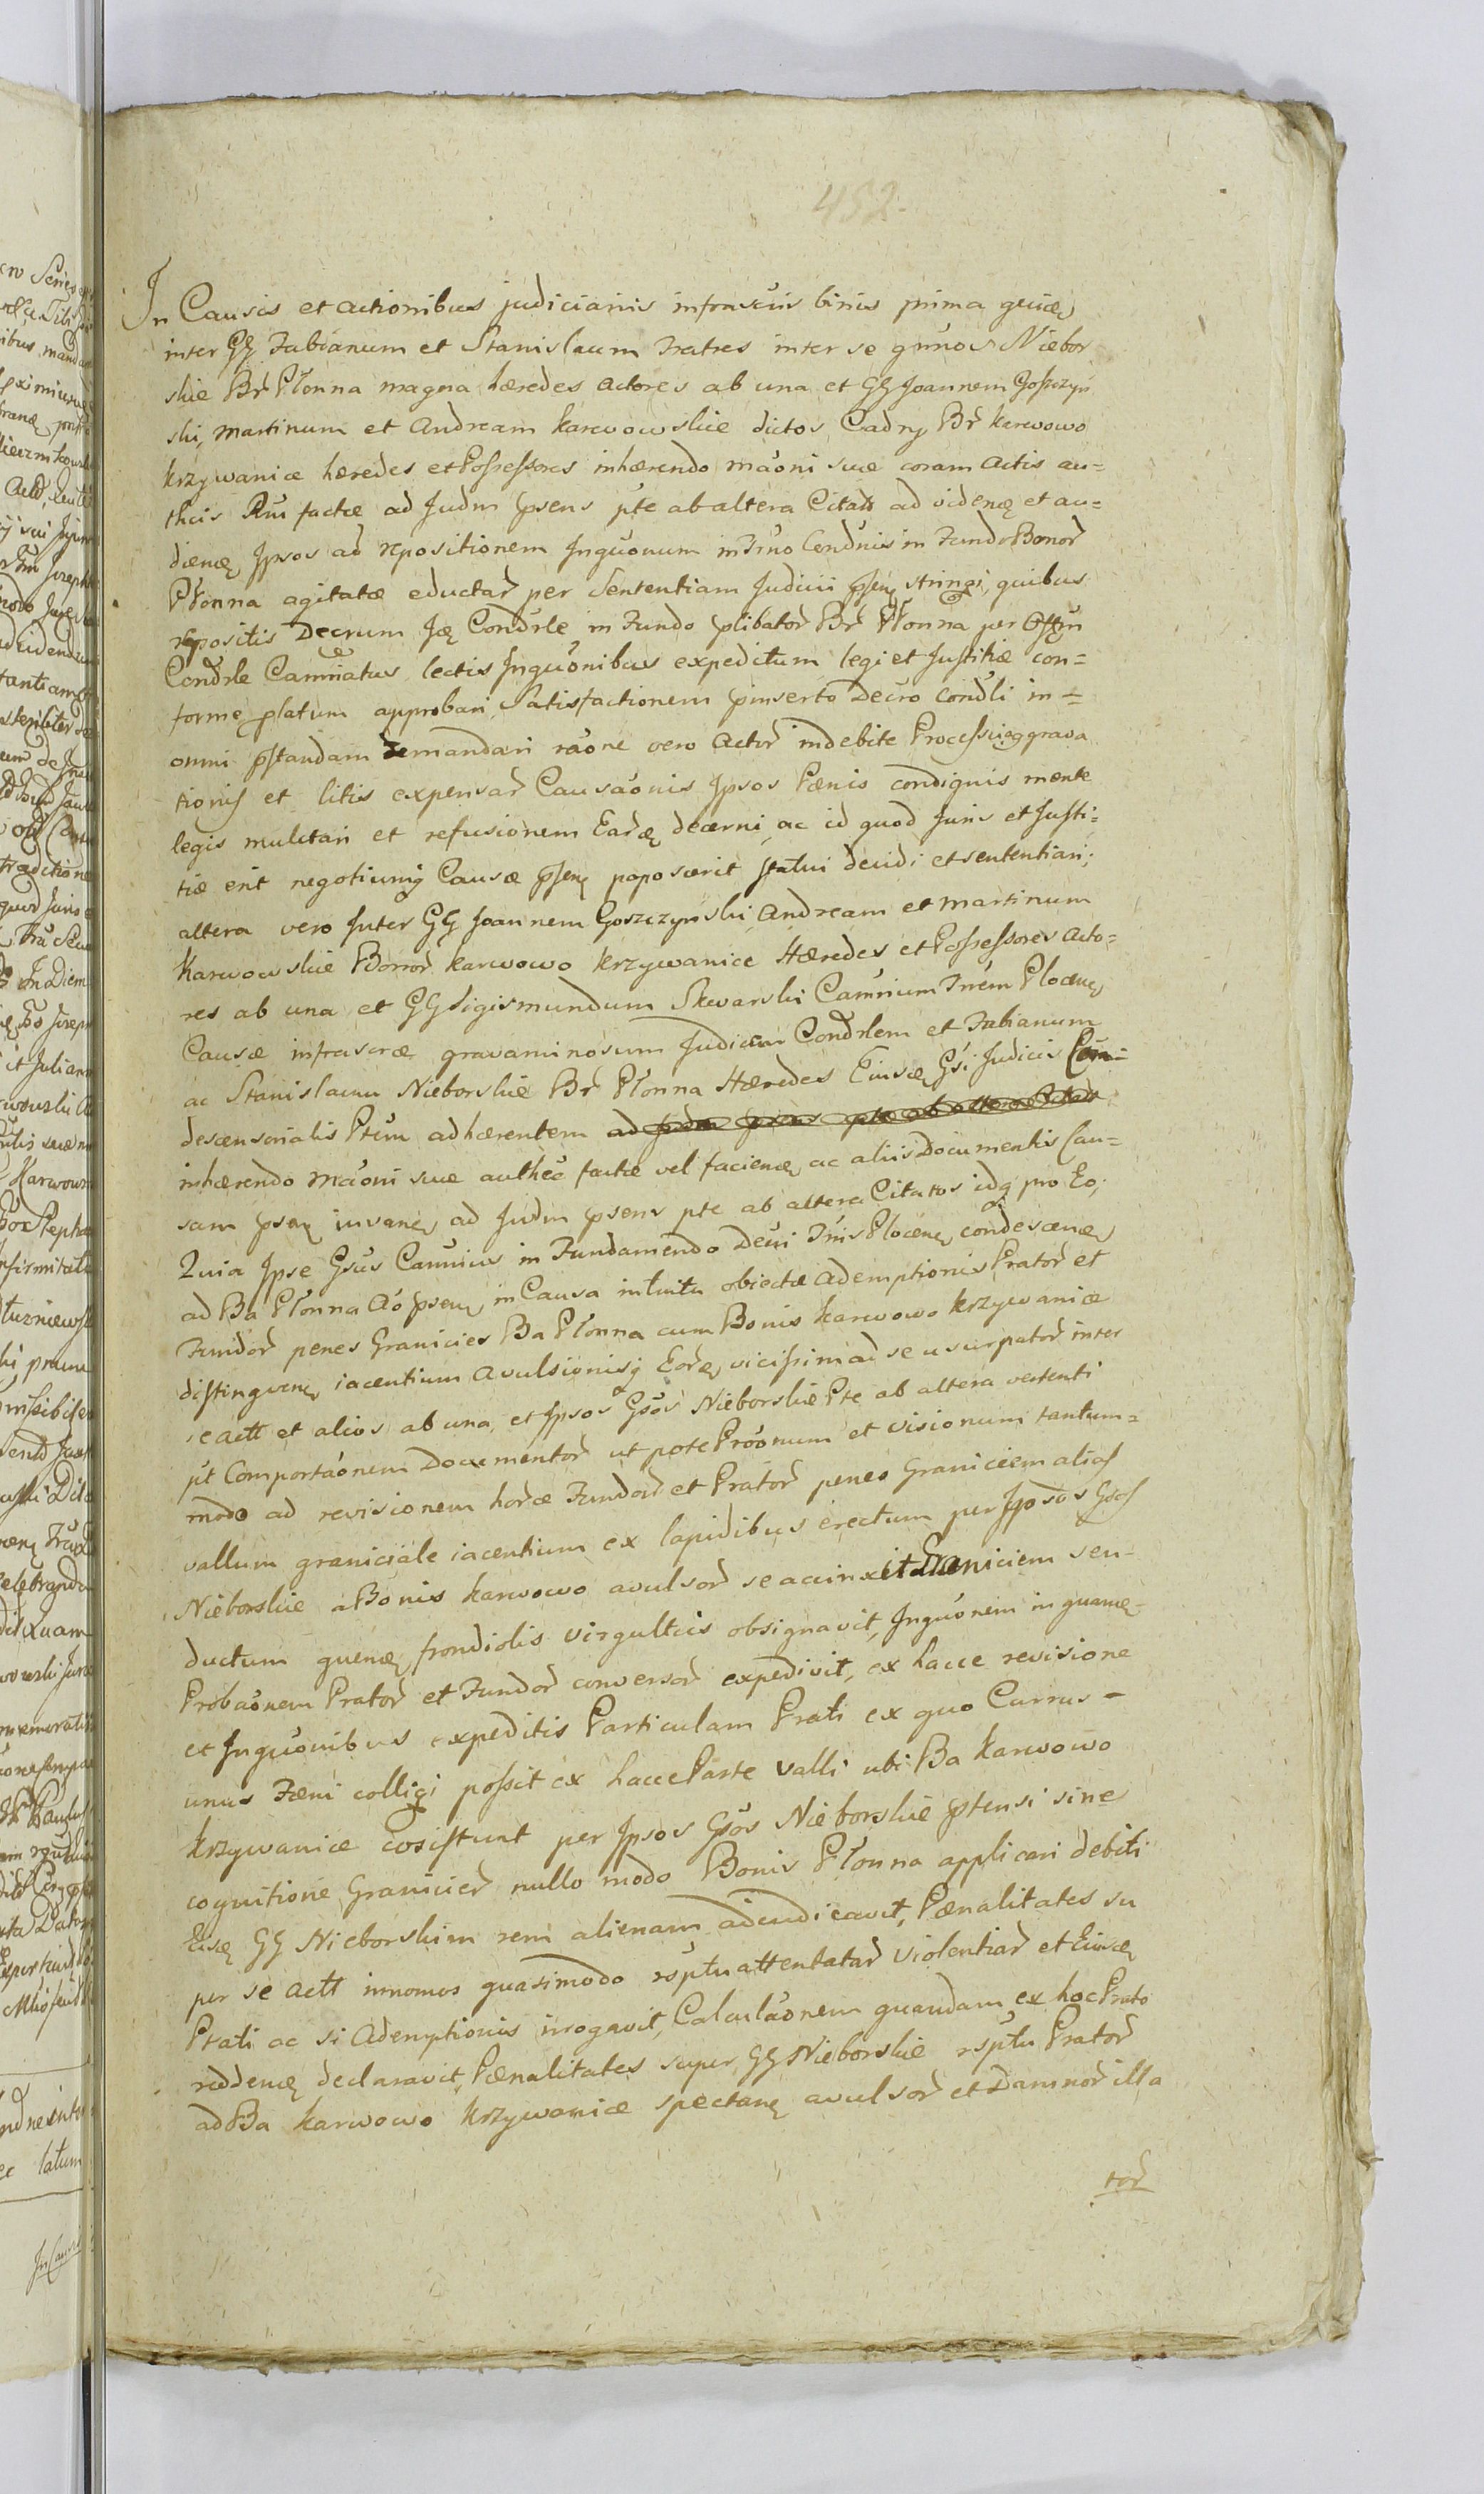 452.
In Causis et actionibus judiciariis infrascriis binis prima quidę
inter GG Fabianum et Stanislaum Fratres inter se gńnos Niebor
skie Br̃ Płonna magna hæredes actores ab una et GG Joannem Goszczyn
ski, Martinum et Andream Karwowskie dictos, Br̃ Karwowo
krzywanice hæredes et Possessores inhærendo mãoni suæ coram Actis au=
thcis factæ ad Judm psens pte ab altera Citatt ad videnę et au=
dienę Ipsos ad repositionem Inquõnum in Trno Condnis in Fundo Bonor̃
Płonna agitatæ eductar̃ per Sententiam Judicii psenę stringi, quibus
repositis Decrum Condrle in Fundo plibator̃ Br̃ Płonna per
Condrle lectis Inquõnibus expeditum legi et Justitiæ con=
forme platum approbari, Satisfactionem pinserto Decro Condli in=
omni pstandam demandari rãone vero Actor̃ indebite Processu aggrava
tionis et litis expensar̃ Causãonis Ipsos Pænis condignis mente
legis mulctari et refusionem Earę decerni, ac id quod Juris et Justi=
tiæ erit negotiumq̃ Causæ psenę poposcerit statui decidi et sententiari;
altera vero Inter GG Joannem Goszczynski Andream et Martinum
Karwowskie Bonor̃ Karwowo krzywanice Hæredes et Possessores Acto=
res ab una et GG Sigismundum Skwarski Camrium Trrem Plocenę
Causæ infrascræ gravaminosum Judicem Condrlem et Fabianum
ac Stanislaum Nieborskie Br̃ Płonna Hæredes Eiusdę Gsi Judicis Con=
descensorialis Ptum adhærentem ad Judm psens pte ab altera Citatt
inhærendo Mãoni suæ authcõ factæ vel facienę ac aliis Documentis Cau=
sam psenę iuvanę ad Judm psens pte ab altera Citatos idq̃ pro Eo,
Quia Ipse Gsus Camrius in Fundamendo Decri Trris Plocenę condescenę
ad Ba Płonna Aõ psenę in Causa intuitu obiectæ ademptionis Prator̃ et
Fundor̃ penes Granicies Ba Płonna cum Bonis Karwowo krzywanice
distinguenę iacentium avulsionisq̃ Eorę vicissim ad se usurpator̃ inter
se Actt et alios ab una, et Ipsos Gsos Nieborskie Pte ab altera vertenti
pt Comportãonem Documentor̃ ut pote Prõonum et visionum tantum=
modo ad revisionem horce Fundor̃ et Prator̃ penes Graniciem alias
vallum graniciale iacentium ex lapidibus erectum per Ipsos Gsos
Nieborskie a Bonis Karwowo avulsor̃ se accinxit Graniciem seu
ductum quenę frondiolis virgulteis obsignavit, Inquõnem in quamę
Probãonem Prator̃ et Fundor̃ conversor̃ expedivit, ex hacce revisione
et Inquõnibus expeditis Particulam Prati ex quo Currus -
unus Fæni colligi possit ex hacce Parte Valli ubi Ba Karwowo
krzywanice cosistunt per Ipsos Gsos Nieborskie ptensi sine
cognitione Granicier̃ nullo modo Bonis Płonna applicari debiti
Eisdę GG Nieborskim rem alienam adiudicavit, Pænalitates su
per se Actt innomos quasimodo rsptu attentatar̃ violentiar̃ et Eiusdę
Prati ac si Ademptionis irrogavit, Calculãonem quandam ex hoc Prato
reddenę declaravit, Pænalitates super GG Nieborskie rsptu Prator̃
ad Ba Karwowo krzywanice spectanę avulsor̃ et Damnor̃ illa
tor̃